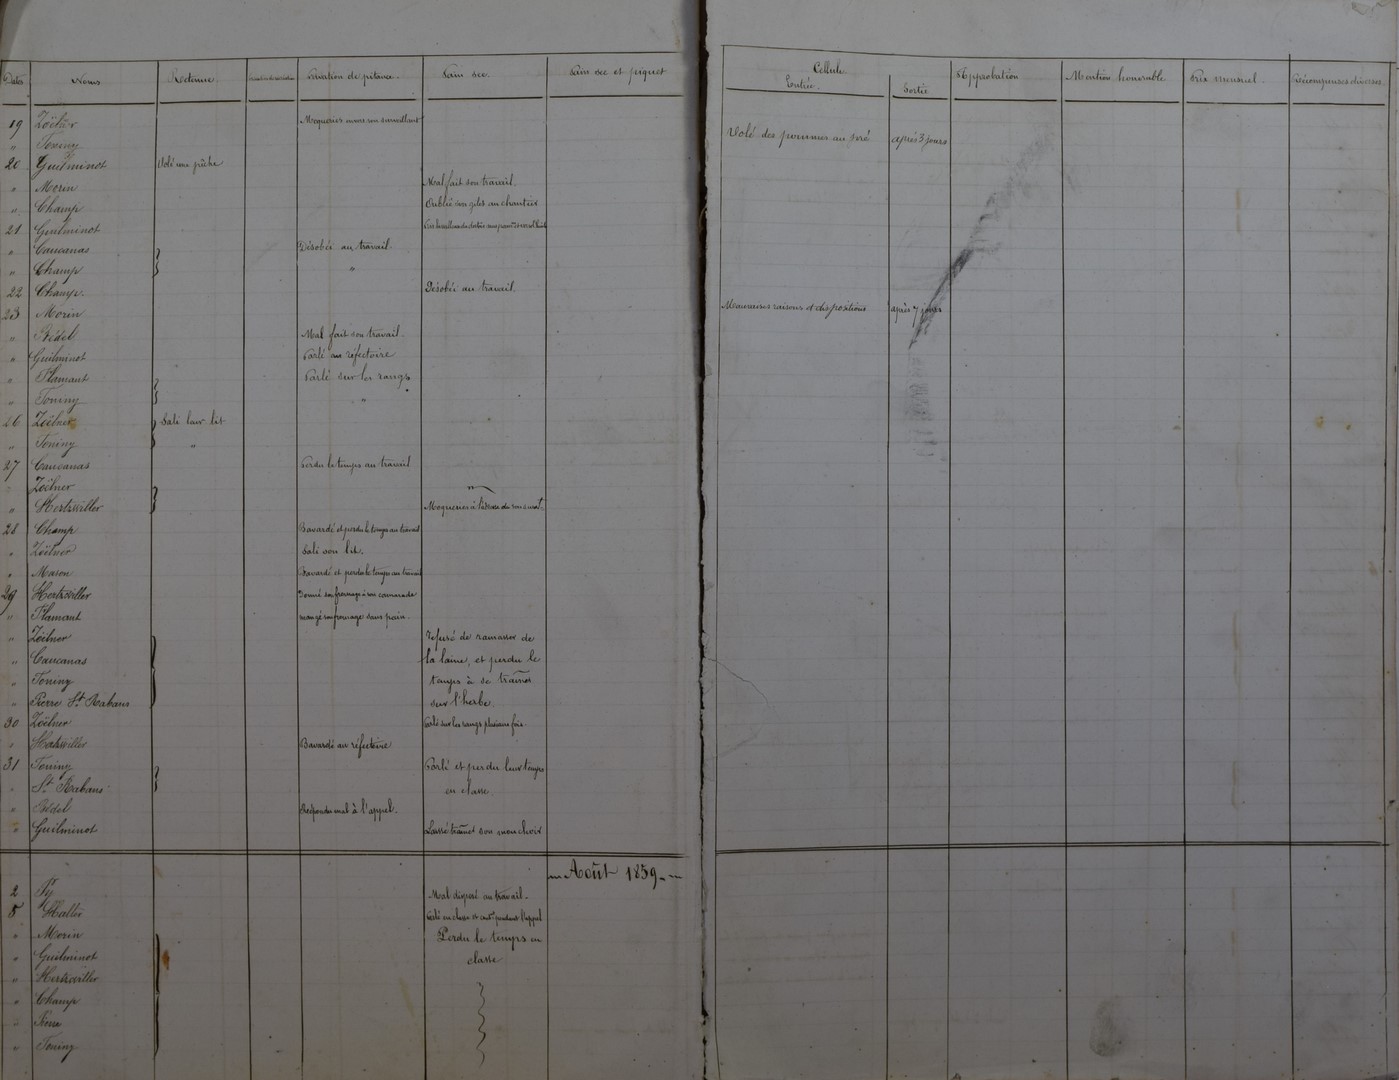 Dates Noms Retenue Privation de pitance. Pain sec. Pain sec et piquet Cellule Entrée. Sortie Approbation Mention honorable Prix mensuel. Récompenses diverses
19 Zöelner Moqueries envers son surveillant
" Toniny Volé des pommes au pré après 3 jours
20 Guilminot Volé une pêche
" Morin Mal fait son travail.
" Champ Oublié son gilet au chantier
21 Guilminot
" Caucanas Désobéi au travail.
" Champ "
22 Champ. Désobéi au travail.
23 Morin Mauvaises raisons et dispositions après 7 jours
" Bédel Mal fait son travail.
" Guilminot Parlé au réfectoire
" Flamant Parlé sur les rangs
" Toniny "
26 Zöelner Sali leur lit
" Toniny "
27 Caucanas Perdu le temps au travail
" Zöelner
" Hertzwiller Moqueries à l'adresse de
28 Champ Bavardé et perdu le temps au travail
" Zöelner Sali son lit.
" Mason Bavardé et perdu le temps au travail
29 Hertzwiller Donné son fromage à son camarade
" Flamant mangé son fromage sans pain.
" Zöelner refusé de ramasser de
" Caucanas la laine, et perdu le
" Toniny temps à se traîner
" Pierre St. Rabans sur l'herbe.
30 Zöelner Parlé sur les rangs plusieurs fois.
" Hertzwiller Bavardé au réfectoire
31 Toniny Parlé et perdu leur temps
" St. Rabans en classe.
" Bédel Répondu mal à l'appel.
" Guilminot Laissé traîner son mouchoir
Août 1859
2 Py Mal disposé au travail.
5 Hallier Parlé en classe et pendant l'appel
" Morin Perdu le temps en
" Guilminot classe
" Hertzwiller
" Champ
" Pierre
" Toniny